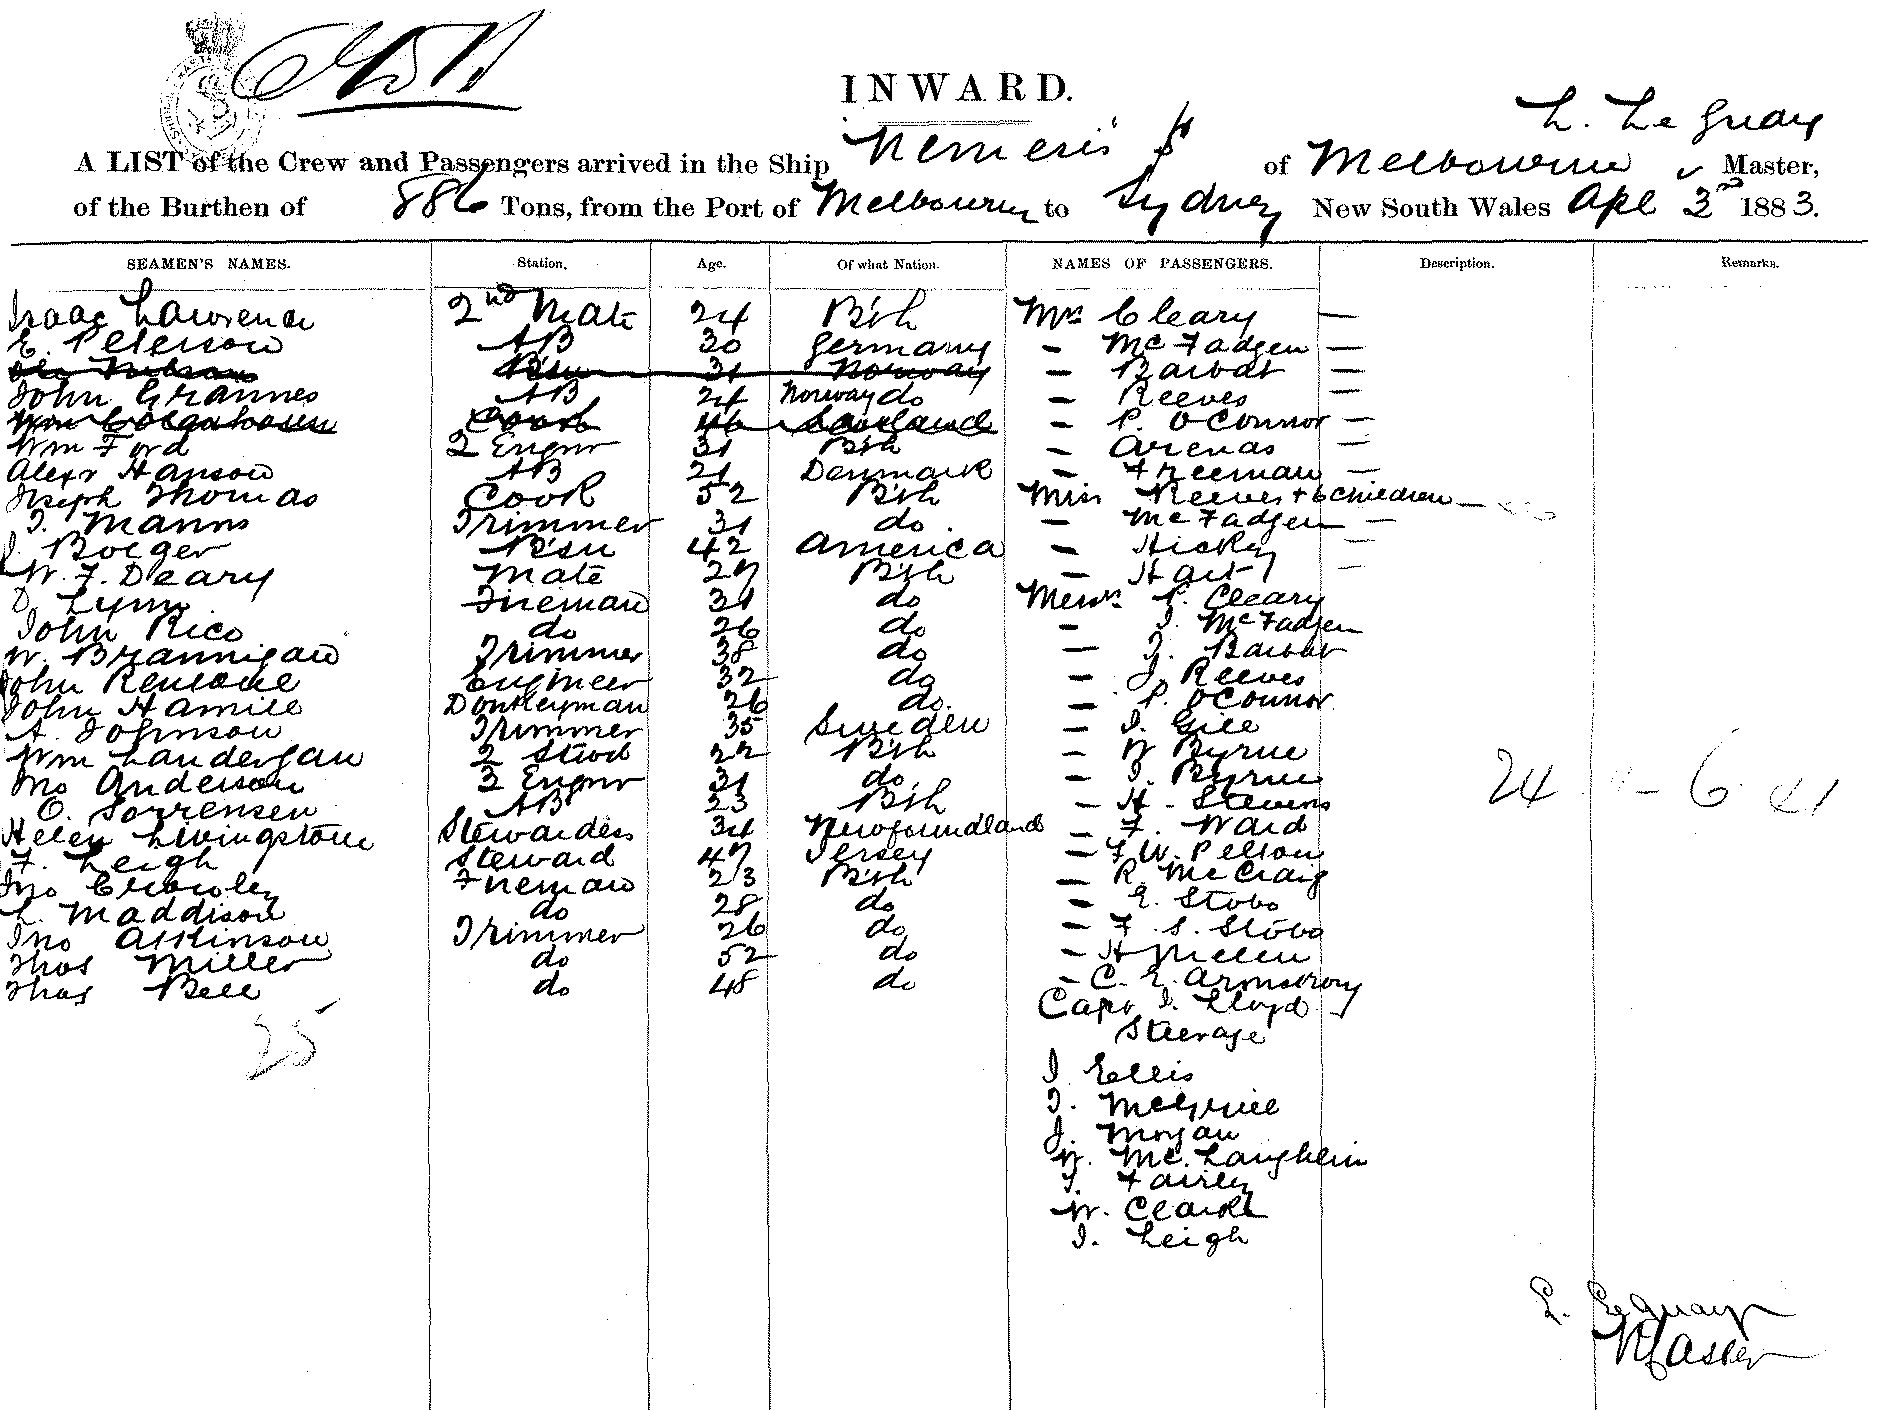 INWARD.
L. Le Guay
A LIST of the Crew and Passengers arrived in the Ship Nemesis of Melbourne Master,
of the Burthen of 886 Tons, from the Port of Melbourne to Sydney New South Wales Apl 3rd 1883.
SEAMEN'S NAMES. Station. Age. Of what Nation. NAMES OF PASSENGERS. Description. Remarks.
Isaac Lawrence 2nd Mate 24 B'sh Mrs Cleary —
E. Peterson AB 30 Germany - McFadgen —
31 Norway - Barbat —
John Grannes AB 24 Norway do - Reeves —
Wm Cook 46 Scotland - P. O'Connor —
Wm Ford 2 Engnr 31 B'sh - Arenas —
Alexr Hanson AB 21 Denmark - Freeman —
Joseph Thomas Cook 52 B'sh Miss Reeves + 6 children —
J. Manns Trimmer 31 do. - McFadgen —
J. Boeger B'sn 42 America - Hickey —
W. F. Deary Mate 27 B'sh - Hart —
D. Lynn Fireman 31 do Messrs P. Cleary
John Rico do 26 do - J. McFadgen
W. Brannigan Trimmer 38 do - J. Barbat
John Engineer 32 do - J. Reeves
John Hamill Donkeyman 26 do. - P. O'Connor
A. Johnson Trimmer 35 Sweden - J. Gill
Wm Landergan 2 Stwd 22 B'sh - W Byrne
Jno Anderson 3 Engnr 31 do - J. Byrne
O. Sorrensen AB 23 B'sh - H. Stevens
Helen Livingstone Stewardess 34 Newfoundland - F. Ward
F. Leigh Steward 47 Jersey - F. W. Pelton
Jno Crowley Fireman 23 B'sh - R. McCraig
L. Maddison do 28 do - E. Stobo
Jno Atkinson Trimmer 26 do - F. S. Stobo
Thos Miller do 52 do - H
Thos Bell do 48 do - C. E. Armstrong
Capt J. Lloyd
25
Steerage
J Ellis
J.
J. Morgan
W. McLaughlin
J. Fairley
W. Clarke
J. Leigh
24 - 6. 41
L. Le Guay
Master